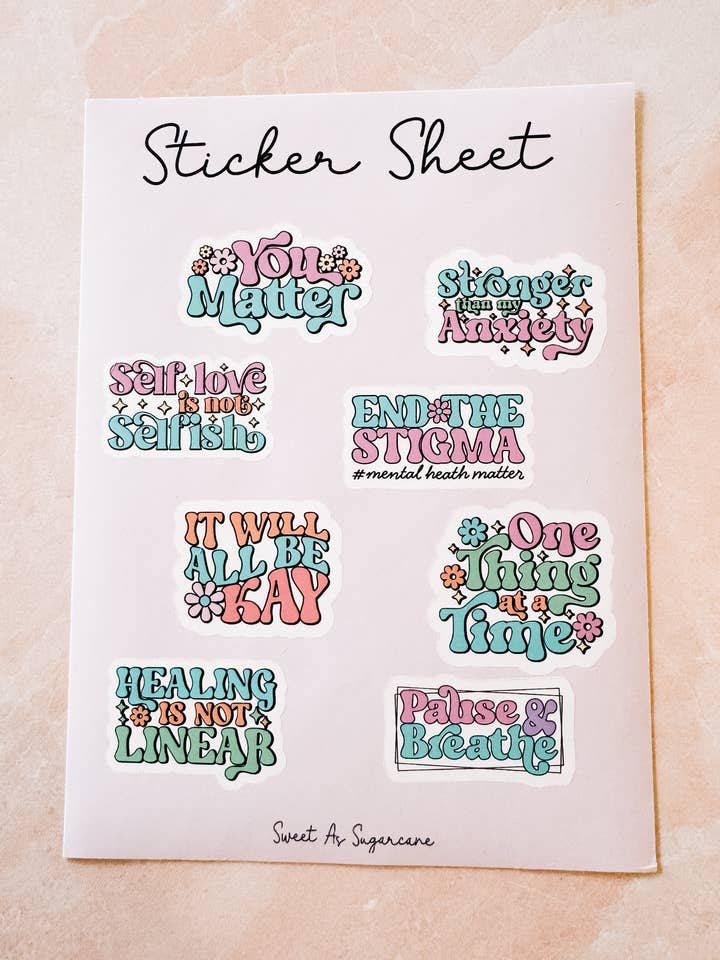 Sticker Sheet
You
Matter
Stronger
than my
Anxiety
Self love
is not
Selfish
END THE
STIGMA
#mental heath matter
IT WILL
ALL BE
OKAY
One
Thing
at a
Time
HEALING
IS NOT
LINEAR
Pause &
Breathe
Sweet As Sugarcane